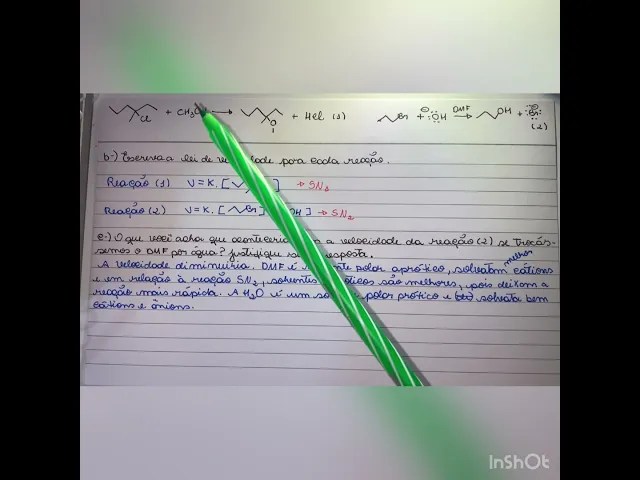 Cl + CH₃ → O + HCl (1) Br + ⊖:ÖH DMF → OH + :Br:⊖ (2)
b-) Escreva a lei de velocidade para cada reação.
Reação (1) V = K. [ ] → SN₁
Reação (2) V = K. [ Br] OH ] → SN₂
c-) O que você acha que aconteceria com a velocidade da reação (2) se trocás-
semos o DMF por água? Justifique resposta.
A velocidade diminuiria. DMF é polar aprótico, solvatam melhor cátions
e em relação à reação SN₂, solventes são melhores, pois deixam a
reação mais rápida. A H₂O é um polar prótico e solvata bem
cátions e ânions.
InShOt